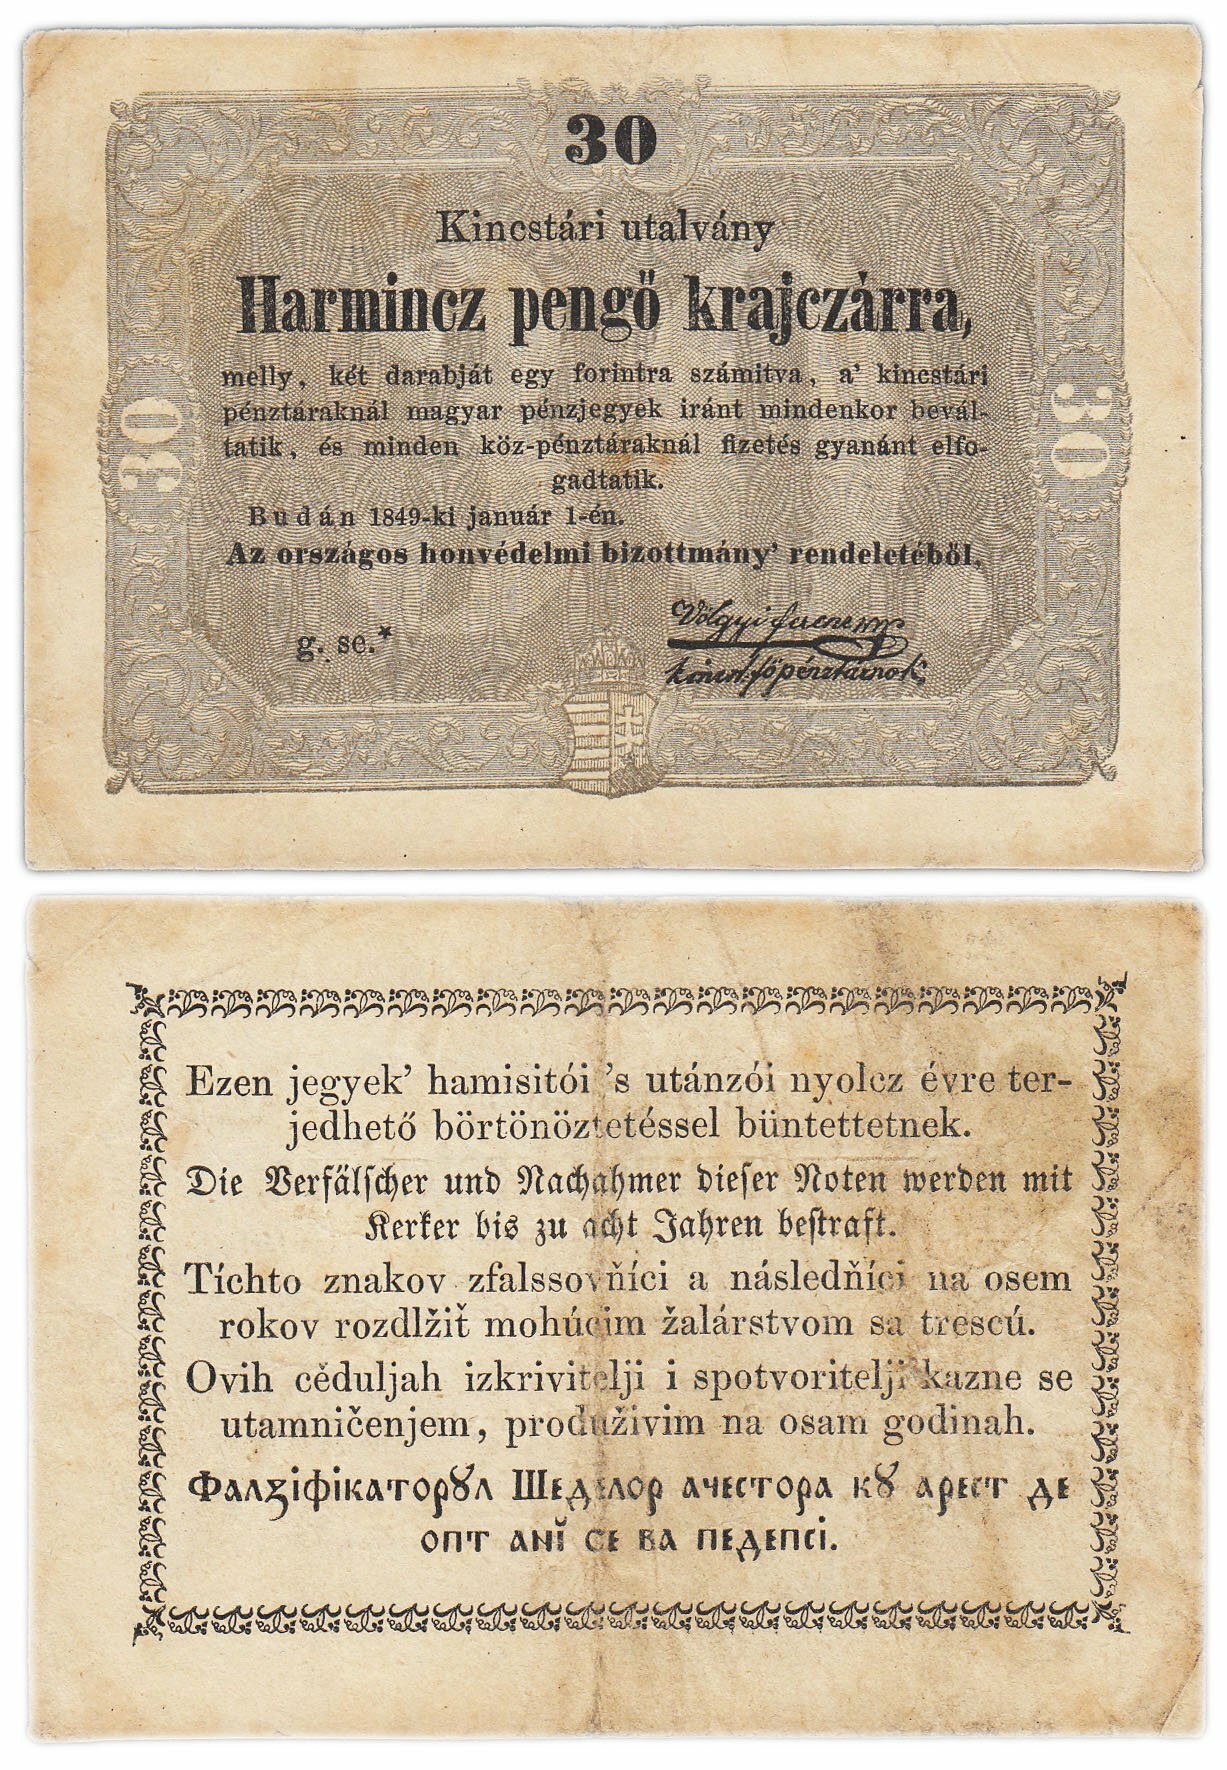 30
Kincstári utalvány
Harmincz pengő krajczárra,
melly, két darabját egy forintra számitva, a' kincstári
pénztáraknál magyar pénzjegyek iránt mindenkor bevál-
tatik, és minden köz-pénztáraknál fizetés gyanánt elfo-
gadtatik.
30
30
Budán 1849-ki január 1-én.
Az országos honvédelmi bizottmány' rendeletéből.
g. se.*
Völgyi ferencz
kincst. főpénztárnok
Ezen jegyek' hamisitói 's utánzói nyolcz évre ter-
jedhető börtönöztetéssel büntettetnek.
Die Verfälscher und Nachahmer dieser Noten werden mit
Kerker bis zu acht Jahren bestraft.
Tíchto znakov zfalssovňíci a následňíci na osem
rokov rozdlžiť mohúcim žalárstvom sa trescú.
Ovih cěduljah izkrivitelji i spotvoritelji kazne se
utamničenjem, produživim na osam godinah.
Фалзіфікаторꙋл Шеделор ачестора кꙋ арест де
опт ані̆ се ва педепсі.